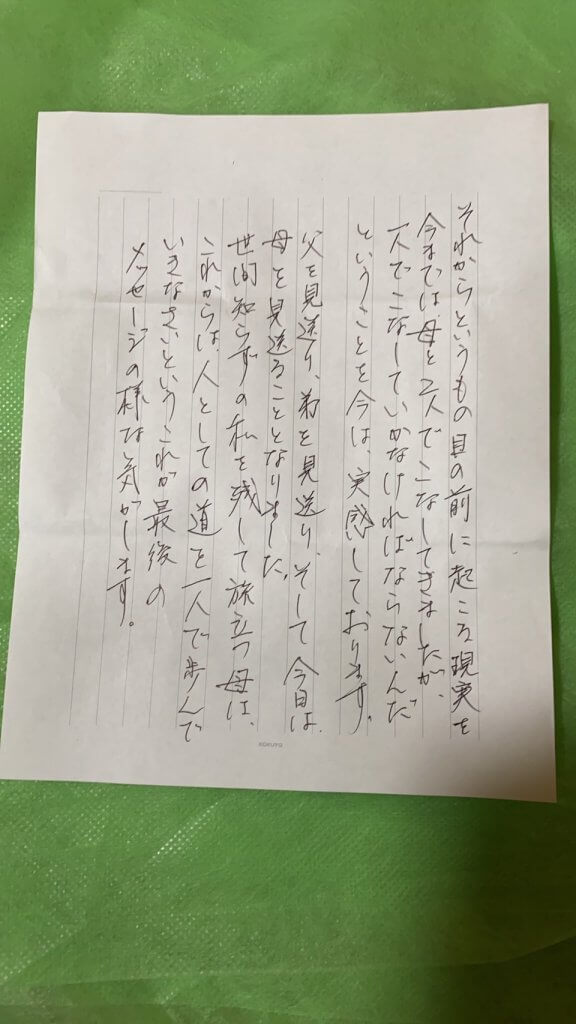 それからというもの目の前に起こる現実を
今までは、母と2人でこなしてきましたが、
一人でこなしていかなければならないんだ
ということを今は、実感しております。
父を見送り、弟を見送り、そして今日は、
母を見送ることとなりました。
世間知らずの私を残して旅立つ母は、
これからは、人としての道を一人で歩んで
いきなさいというこれが最後の
メッセージの様な気がします。
KOKUYO